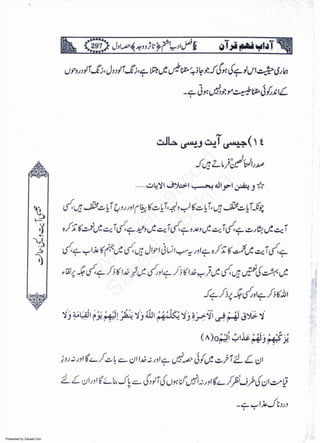 آداب فہم قرآن
فصل ادب ہشتم ﴿تاثر و وجد﴾ حصہ اول
297
ہماری حیثیت اس لوہے کی ہوگی کہ جو جاذبہ مقناطیس میں مبتلا ہے، زنگ آلود دل، زنگ آلود روحوں
کے اندر کوئی مقناطیسیت موجود نہیں ہوتی ہے۔
۱۴) جیسی آیت ویسی حالت
صدر المتالہین فرماتے ہیں کہ
☆ و يتفنن احواله بحسب اختلاف الايات
چونکہ آیات مختلف ہیں، آیات کا لب و لہجہ، آیات کا پیغام اور روح آیات مختلف ہیں، کسی
آیت میں بشارت ہے، کسی آیت میں وعدہ ہے، کسی آیت میں وعید ہے، کسی آیت میں نعمت کا تذکرہ
ہے، کسی آیت میں نقمت کا تذکرہ ہے اور یہ سب انسانی احوال ہیں، کسی میں جہنم کا عذاب ہے، کسی
میں بہشت کی نعمتیں ہیں، کسی میں قرب خدا کا ذکر ہے اور کسی میں خدا کا ذکر ہے، کسی جگہ پر لقاء
اللہ کا ذکر ہے اور کسی جگہ پر ذکر ہے کہ
لَا خَلَاقَ لَهُمْ فِى الْاٰخِرَةِ وَلَا يُكَلِّمُهُمُ اللّٰهُ وَلَا يَنْظُرُ اِلَيْهِمْ يَوْمَ الْقِيَامَةِ وَلَا
يُزَكِّيْهِمْ وَلَهُمْ عَذَابٌ اَلِيْمٌ○ (۸)
ان کے لئے آخرت میں کوئی حصہ نہیں ہے اور نہ خدا ان سے بات کرے گا اور نہ روز
قیامت ان کی طرف نظر کرے گا اور نہ انہیں گناہوں کی آلودگی سے پاک بنائے گا اور ان کے لئے
دردناک عذاب ہے۔
جیسی آیت ویسی حالت
Presented by Ziaraat.Com